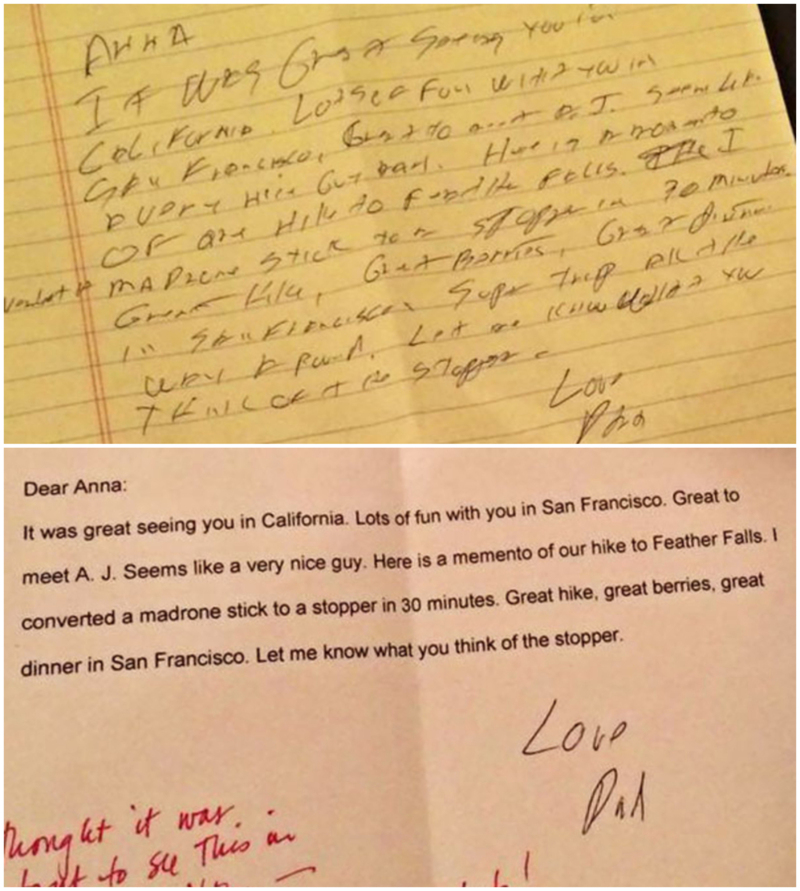 ANNA
It was Great Seeing You in
California. Lots of Fun with you in
San Francisco, Great to meet A. J. Seems like
a very nice Guy. Here is a memento
OF our Hike to Feather Falls. I
converted a MADrone Stick to a Stopper in 30 minutes.
Great Hike, Great Berries, Great Dinner
in San Francisco. Super trip all the
way around. Let me know what you
think of the Stopper.
Love
Dad
Dear Anna:
It was great seeing you in California. Lots of fun with you in San Francisco. Great to
meet A. J. Seems like a very nice guy. Here is a memento of our hike to Feather Falls. I
converted a madrone stick to a stopper in 30 minutes. Great hike, great berries, great
dinner in San Francisco. Let me know what you think of the stopper.
Love
Dad
thought it was
to see This in